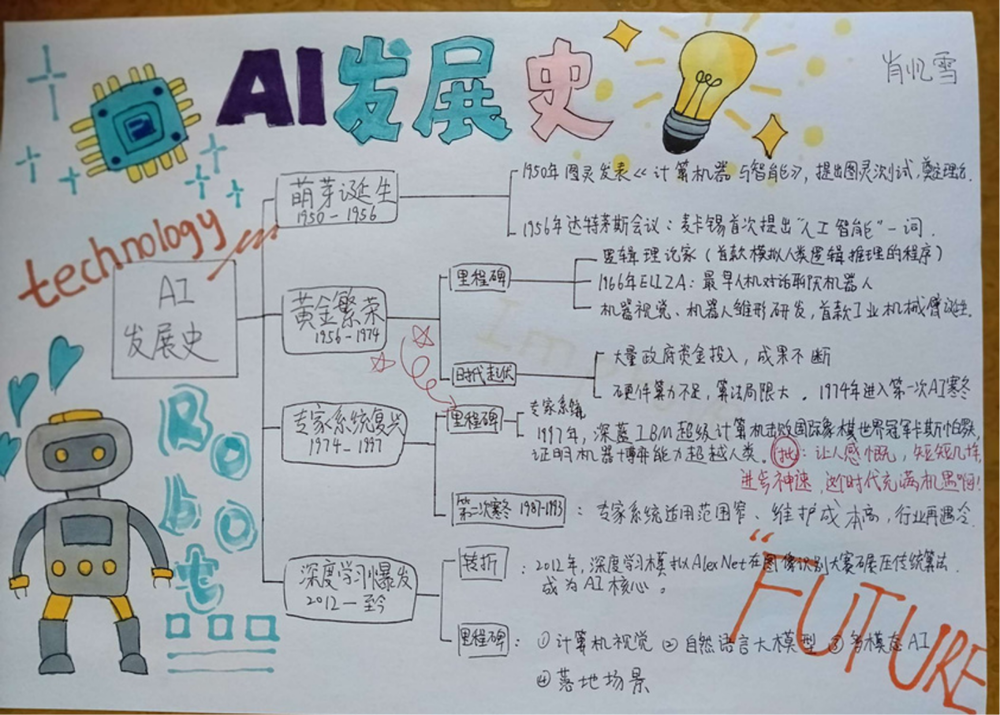 AI发展史
肖忆雪
technology
AI
发展史
Robot
萌芽诞生
1950-1956
1950年图灵发表《计算机器与智能》,提出图灵测试,奠定理论.
1956年达特茅斯会议:麦卡锡首次提出"人工智能"一词.
黄金繁荣
1956-1974
里程碑
逻辑理论家(首款模拟人类逻辑推理的程序)
1966年ELIZA:最早人机对话聊天机器人
机器视觉、机器人雏形研发,首款工业机械臂诞生.
时代起伏
大量政府资金投入,成果不断
硬件算力不足,算法局限大.1974年进入第一次AI寒冬
专家系统复兴
1974-1997
里程碑
专家系统
1997年,深蓝IBM超级计算机击败国际象棋世界冠军卡斯帕罗夫,
证明机器博弈能力超越人类.
批:让人感慨,短短几十年,
进步神速,这时代充满机遇啊!
第二次寒冬 1987-1993
:专家系统适用范围窄、维护成本高,行业再遇冷.
深度学习爆发
2012-至今
转折
:2012年,深度学习模拟AlexNet在图像识别大赛碾压传统算法.
成为AI核心。
里程碑
:①计算机视觉 ②自然语言大模型 ③多模态AI
④落地场景
"FUTURE